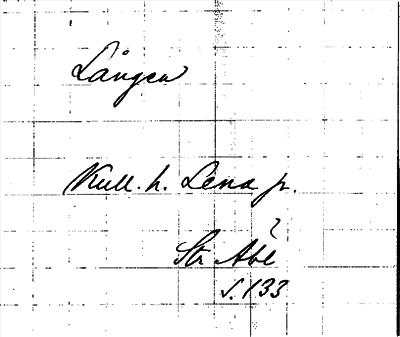 Lången
Kull. h. Lena p.
?
Str Abl
s. 133